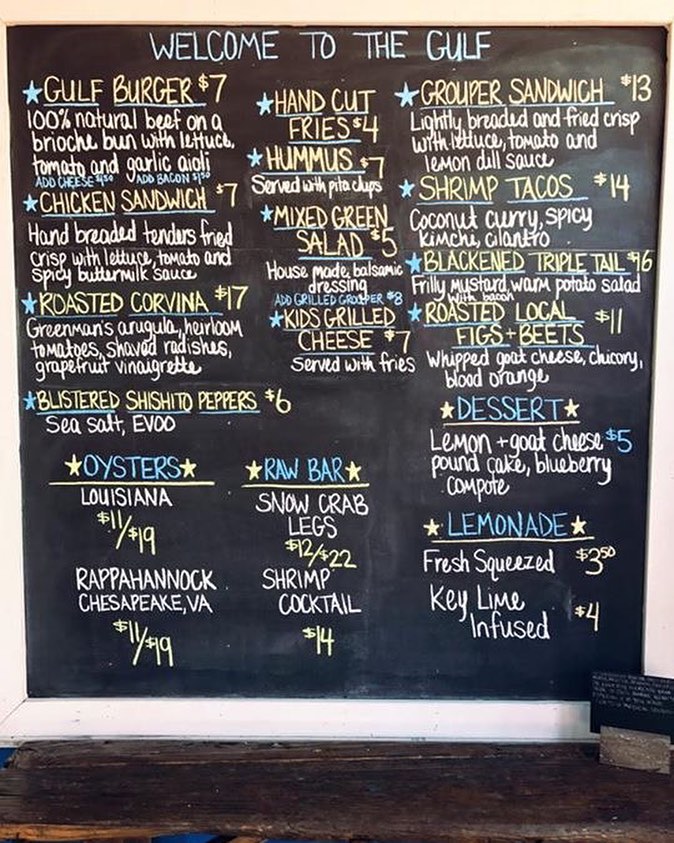 WELCOME TO THE GULF
GULF BURGER $7
100% natural beef on a
brioche bun with lettuce,
tomato and garlic aioli
ADD CHEESE $1.50 ADD BACON $1.50
CHICKEN SANDWICH $7
Hand breaded tenders fried
crisp with lettuce, tomato and
spicy buttermilk sauce
ROASTED CORVINA $17
Greenman's arugula, heirloom
tomatoes, shaved radishes,
grapefruit vinaigrette
BLISTERED SHISHITO PEPPERS $6
Sea salt, EVOO
HAND CUT
FRIES $4
HUMMUS $7
Served with pita chips
MIXED GREEN
SALAD $5
House made, balsamic
dressing
ADD GRILLED GROUPER $8
KIDS GRILLED
CHEESE $7
Served with fries
GROUPER SANDWICH $13
Lightly breaded and fried crisp
with lettuce, tomato and
lemon dill sauce
SHRIMP TACOS $14
Coconut curry, spicy
kimchi, cilantro
BLACKENED TRIPLE TAIL $16
Frilly mustard, warm potato salad
with bacon
ROASTED LOCAL
FIGS + BEETS $11
Whipped goat cheese, chicory,
blood orange
DESSERT
Lemon + goat cheese $5
pound cake, blueberry
compote
OYSTERS
LOUISIANA
$11/$19
RAPPAHANNOCK
CHESAPEAKE, VA
$11/$19
RAW BAR
SNOW CRAB
LEGS
$12/$22
SHRIMP
COCKTAIL
$14
LEMONADE
Fresh Squeezed $3.50
Key Lime
Infused $4